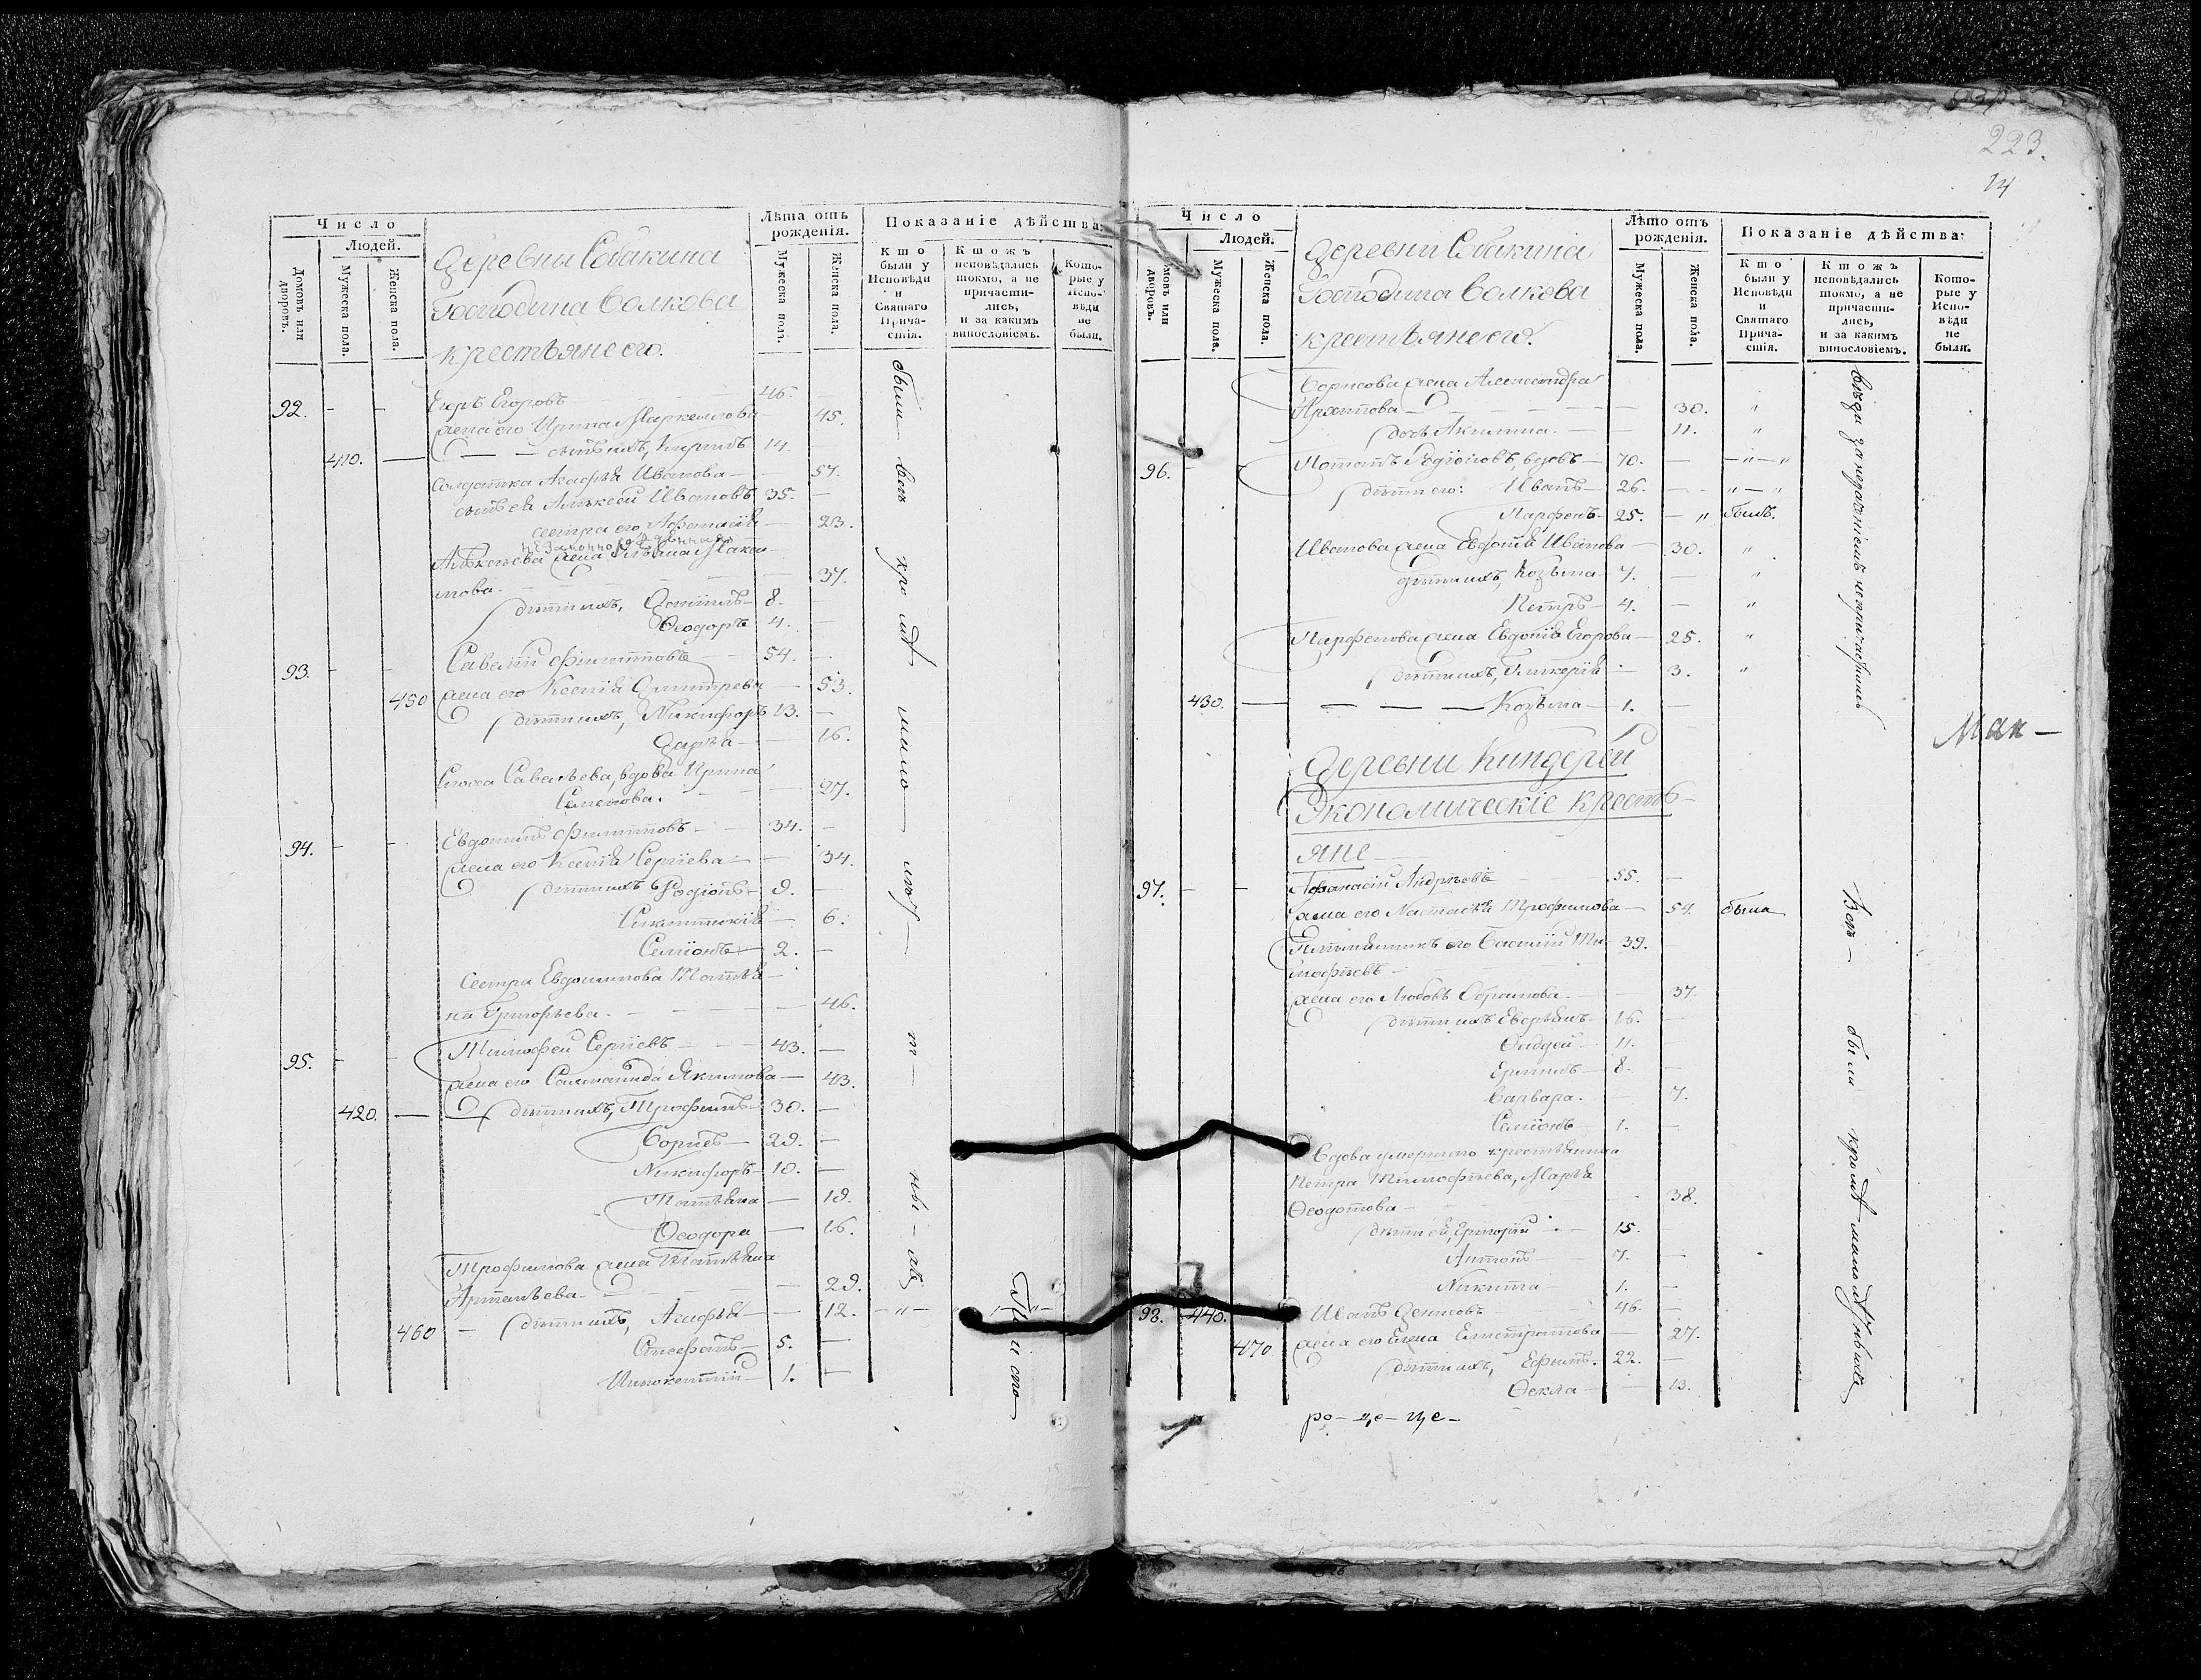 Число
Людей.
Домовъ или дворовъ.
Мужеска пола.
Женска пола.
Деревни Собакина
Господина Волкова
крестьяне его.
Лѣта отъ рожденія.
Мужеска пола.
Женска пола.
Показаніе дѣйства:
Кто были у Исповѣди и Святаго Прича-стія.
Ктожъ исповѣдались токмо, а не причасти-лись, и за какимъ винословіемъ.
Кото-рые у Испо-вѣди не были.
92. Егоръ Егоровъ 46.
жена его Ирина Маркеллова 45.
410. сынъ ихъ, Кирилъ 14.
Солдатка Агафья Иванова 57.
сынъ ея Алѣксей Ивановъ 35.
сестра его Афанасія 23.
незаконнорожденная
Алѣксѣева жена Ульяна Макси-
мова 37.
дѣти ихъ, Данилъ 8.
Ѳеодоръ 4.
93. Савелій Филиповъ 54.
450 жена его Ксенія Дмитрева 53.
дѣти ихъ, Никифоръ 13.
Дарья 16.
Сноха Савельева, вдова Ирина
Семенова. 27.
94. Евдокимъ Филиповъ 34.
жена его Ксенія Сергіева 34.
дѣти ихъ Родіонъ 9.
Синклитикія 6.
Семіонъ 2.
Сестра Евдокимова Татья-
на Григорьева. 46.
95. Тимофей Сергіевъ 43.
жена его Саломанида Якимова 43.
420. дѣти ихъ, Трофимъ 30.
Борисъ 29.
Никифоръ 10.
Татьяна 19.
Ѳеодора 16.
Трофимова жена Татьяна
Артемьева 29.
460 дѣти ихъ, Агафья 12.
Стефанъ 5.
Инокентій 1.
были всѣ кромѣ мало лѣт ны ѣхъ
223.
14
Число
Людей.
Домовъ или дворовъ.
Мужеска пола.
Женска пола.
Деревни Собакина
Господина Волкова
крестьяне его.
Лѣто отъ рожденія.
Мужеска пола.
Женска пола.
Показаніе дѣйства:
Кто были у Исповѣди и Святаго Прича-стія.
Ктожъ исповѣдались токмо, а не причасти-лись, и за какимъ винословіемъ.
Кото-рые у Испо-вѣди не были.
Борисова жена Александра
Архипова 30. "
дочь Акилина. 11. "
96. Потапъ Родіоновъ, вдовъ 70.
дѣти его: Иванъ 26.
Парфенъ 25. былъ.
Иванова жена Евдокія Иванова 30. "
дѣти ихъ, Козьма 7. "
Петръ 4. "
Парфенова жена Евдокія Егорова 25. "
дѣти ихъ, Гликерія 3. "
430. Козьма 1.
Деревни Киндерей
Экономическіе кресть-
яне
97. Афанасій Андрѣевъ 55.
жена его Настасья Трофимова 54. была
Племянникъ его Василій Ти- 39.
мофѣевъ
жена его Любовь Обрамова. 37.
дѣти ихъ Еверьянъ 16.
Фаддей 11.
Ермилъ 8.
Варвара. 7.
Семіонъ 1.
Вдова умершаго крестьянина
Петра Тимофѣева, Марья
Ѳеодотова 38.
дѣти ей, Григорій 15.
Антонъ 7.
Никита 1.
98. 440. Иванъ Денисовъ 46.
470 жена его Елена Елистратова 27.
дѣти ихъ, Ефимъ. 22.
Ѳекла 13.
Всѣ были кромѣ мало лѣтныхъ
Ман-